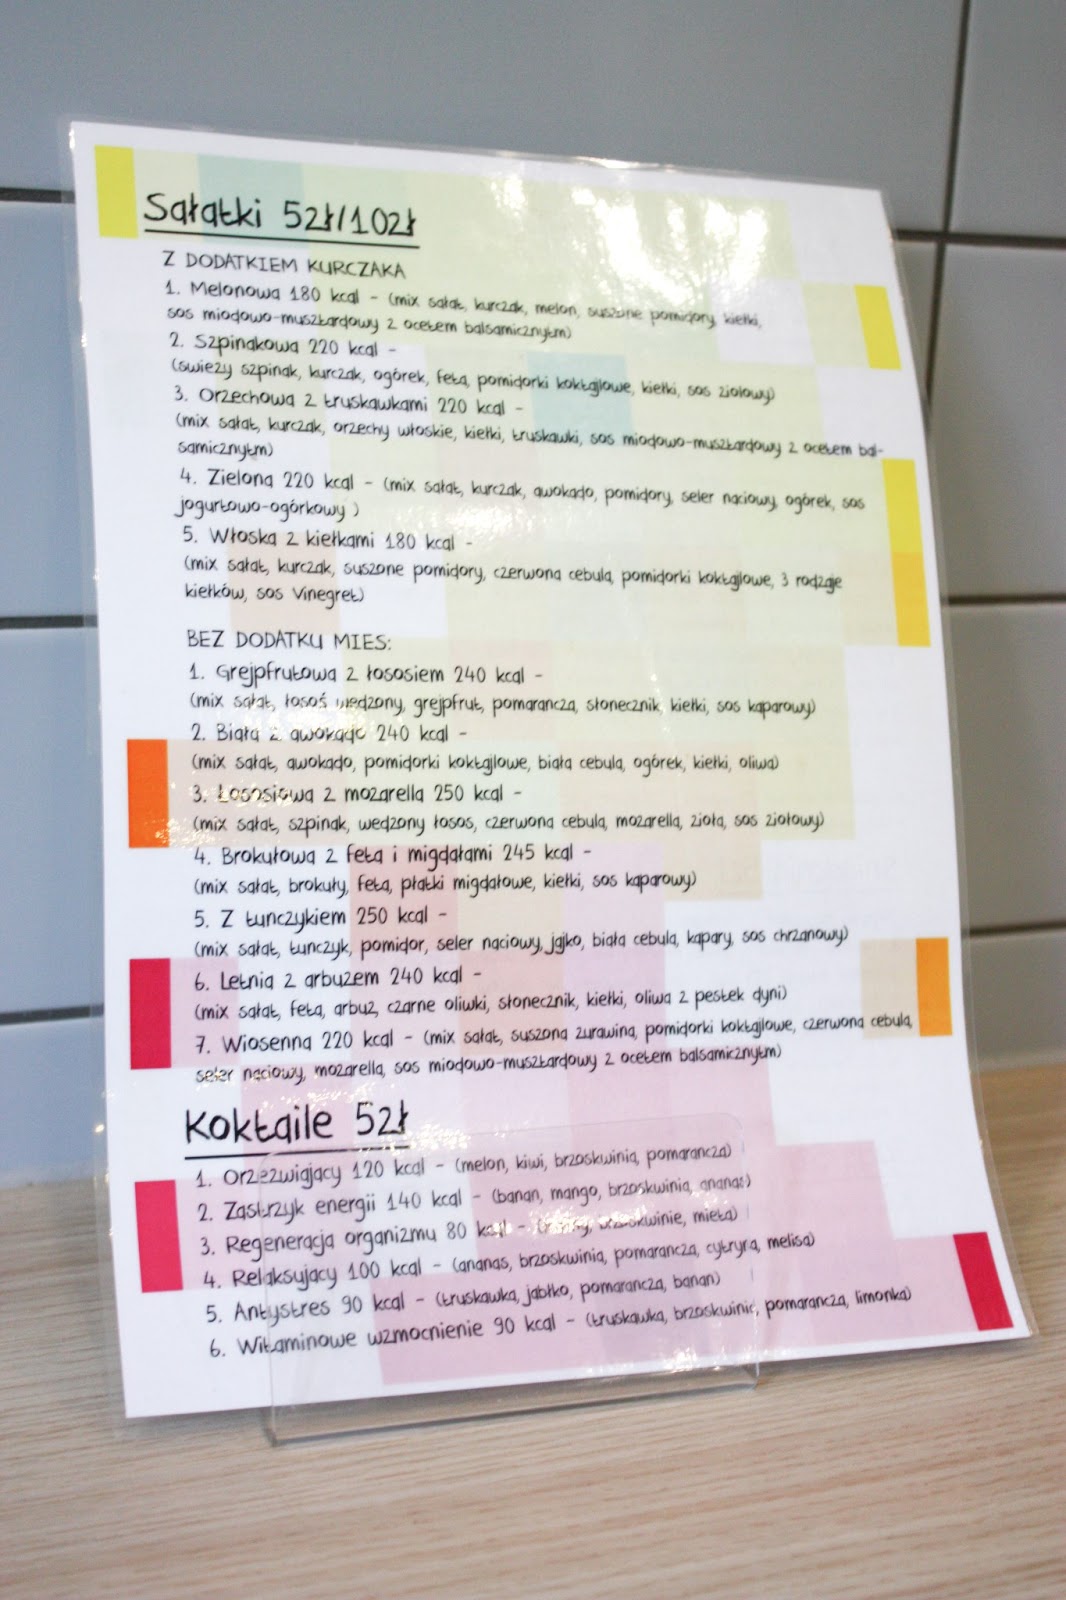 Sałatki 5zł/10zł
Z DODATKIEM KURCZAKA
1. Melonowa 180 kcal - (mix sałat, kurczak, melon, suszone pomidory, kiełki,
sos miodowo-musztardowy z ocetem balsamicznytm)
2. Szpinakowa 220 kcal -
(swieży szpinak, kurczak, ogórek, feta, pomidorki koktajlowe, kiełki, sos ziołowy)
3. Orzechowa z truskawkami 220 kcal -
(mix sałat, kurczak, orzechy włoskie, kiełki, truskawki, sos miodowo-musztardowy z ocetem bal-
samicznytm)
4. Zielona 220 kcal - (mix sałat, kurczak, awokado, pomidory, seler naciowy, ogórek, sos
jogurtowo-ogórkowy )
5. Włoska z kiełkami 180 kcal -
(mix sałat, kurczak, suszone pomidory, czerwona cebula, pomidorki koktajlowe, 3 rodzaje
kiełków, sos Vinegret)
BEZ DODATKU MIES:
1. Grejpfrutowa z łososiem 240 kcal -
(mix sałat, łosoś wędzony, grejpfrut, pomarancza, słonecznik, kiełki, sos kaparowy)
2. Biała z awokado 240 kcal -
(mix sałat, awokado, pomidorki koktajlowe, biała cebula, ogórek, kiełki, oliwa)
3. Łososiowa z mozarella 250 kcal -
(mix sałat, szpinak, wedzony łosos, czerwona cebula, mozarella, zioła, sos ziołowy)
4. Brokułowa z feta i migdałami 245 kcal -
(mix sałat, brokuły, feta, płatki migdałowe, kiełki, sos kaparowy)
5. Z tunczykiem 250 kcal -
(mix sałat, tunczyk, pomidor, seler naciowy, jajko, biała cebula, kapary, sos chrzanowy)
6. Letnia z arbuzem 240 kcal -
(mix sałat, feta, arbuz, czarne oliwki, słonecznik, kiełki, oliwa z pestek dyni)
7. Wiosenna 220 kcal - (mix sałat, suszona zurawina, pomidorki koktajlowe, czerwona cebula,
seler naciowy, mozarella, sos miodowo-musztardowy z ocetem balsamicznytm)
Koktaile 5zł
1. Orzezwiający 120 kcal - (melon, kiwi, brzoskwinia, pomarancza)
2. Zastrzyk energii 140 kcal - (banan, mango, brzoskwinia, ananas)
3. Regeneracja organizmu 80 kcal - brzoskwinie, mieta)
4. Relaksujacy 100 kcal - (ananas, brzoskwinia, pomarancza, cytryna, melisa)
5. Antystres 90 kcal - (truskawka, jabłko, pomarancza, banan)
6. Witaminowe wzmocnienie 90 kcal - (truskawka, brzoskwinic, pomarancza, limonka)